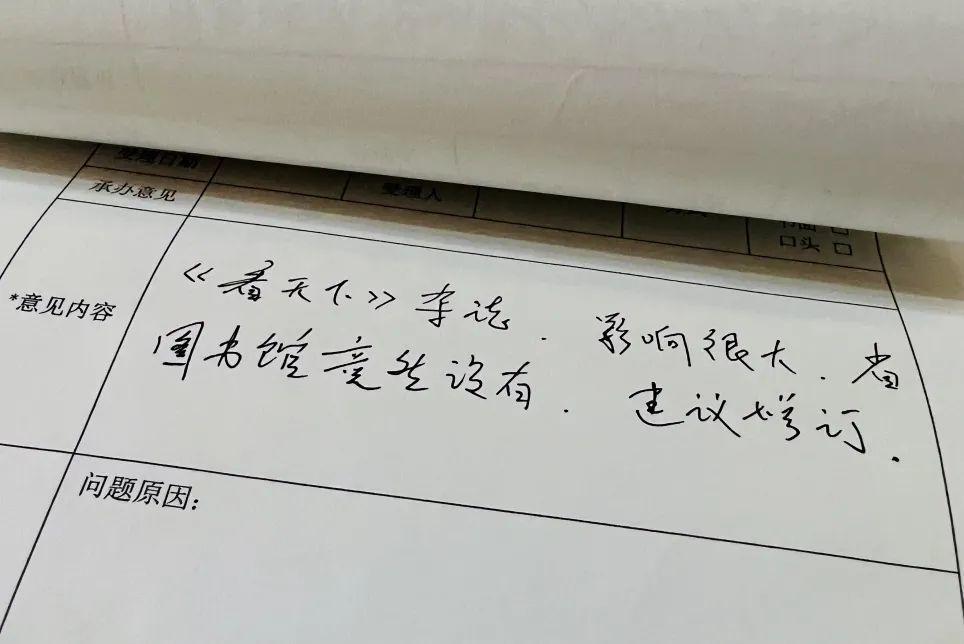 受理日期
承办意见 受理人
口头 □
*意见内容
《看天下》杂志. 影响很大. 省
图书馆竟然没有. 建议增订.
问题原因: